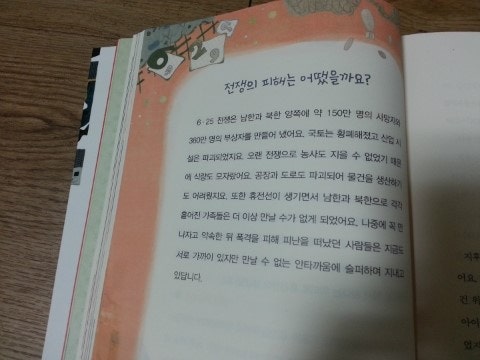 전쟁의 피해는 어땠을까요?
6·25 전쟁은 남한과 북한 양쪽에 약 150만 명의 사망자와
360만 명의 부상자를 만들어 냈어요. 국토는 황폐해졌고 산업 시
설은 파괴되었지요. 오랜 전쟁으로 농사도 지을 수 없었기 때문
에 식량도 모자랐어요. 공장과 도로도 파괴되어 물건을 생산하기
도 어려웠지요. 또한 휴전선이 생기면서 남한과 북한으로 각각
흩어진 가족들은 더 이상 만날 수가 없게 되었어요. 나중에 꼭 만
나자고 약속한 뒤 폭격을 피해 피난을 떠났던 사람들은 지금도
서로 가까이 있지만 만날 수 없는 안타까움에 슬퍼하며 지내고
있답니다.
지후
어요.
건 위
아이